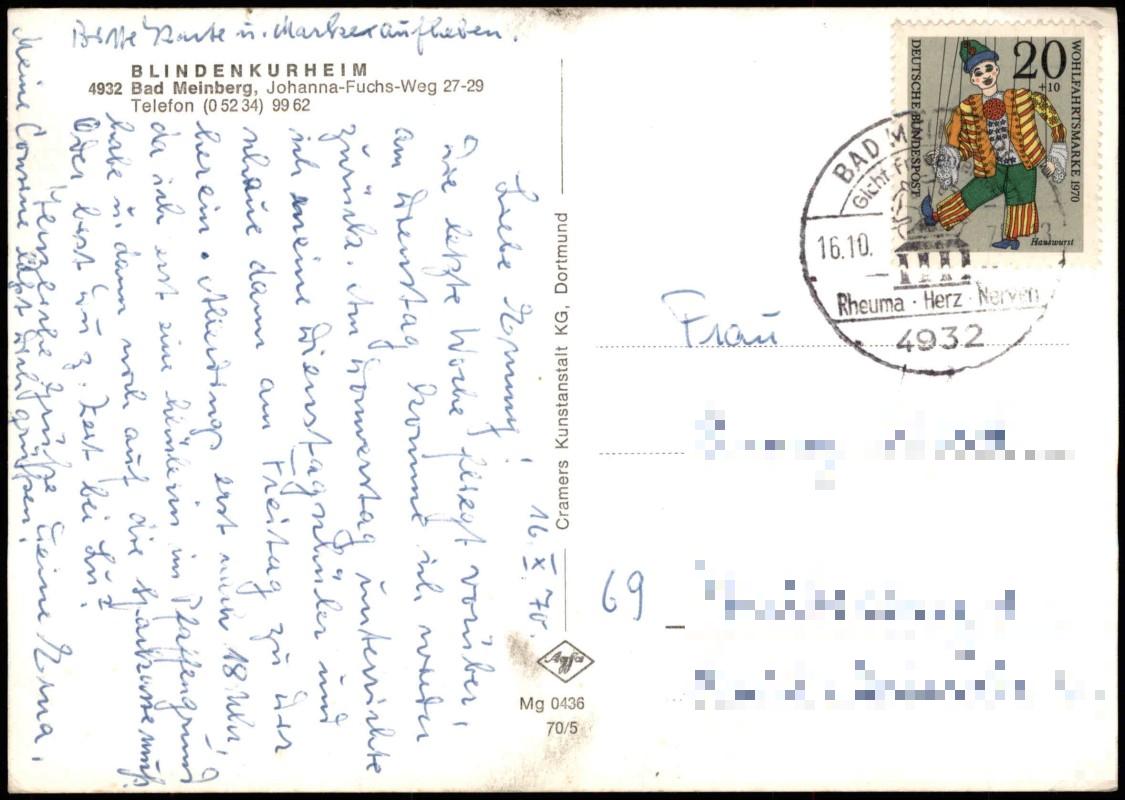 Bitte Karte u. Marken aufheben.
BLINDENKURHEIM
4932 Bad Meinberg, Johanna-Fuchs-Weg 27-29
Telefon (0 52 34) 99 62
16.X.70.
Liebe Emmy!
Die letzte Woche fliegt vorüber,
am Dienstag komme ich wieder
zurück. Am Donnerstag unterrichte
ich meine Dienstagschüler und
schaue dann am Freitag zu Dir
herein. Allerdings erst nach 18 Uhr,
da ich erst eine Schülerin im Pfaffengrund
habe u. dann noch auf die Sparkasse muß
Oder bist Du z. Zeit bei
Herzliche Grüße Deine Erna.
Meine Cousine läßt Dich grüßen.
Cramers Kunstanstalt KG, Dortmund
Agfa
Mg 0436
70/5
DEUTSCHE BUNDESPOST
20
+10
WOHLFAHRTSMARKE 1970
Hanswurst
BAD M
Gicht
16.10.
Rheuma · Herz · Nerven
4932
Frau
69